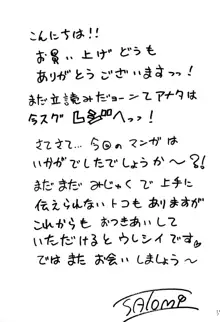 こんにちは!!
お買い上げどうも
ありがとうございますっっ!
まだ立読みだヨーンてアナタは
今スグ レジへっっ!
さてさて…今回のマンガは
いかがでしたでしょうか〜?!
まだまだみじゃくで上手に
伝えられないトコもありますが
これからもおつきあいして
いただけるとウレシイです♡
ではまたお会いしましょう〜
SAToMi